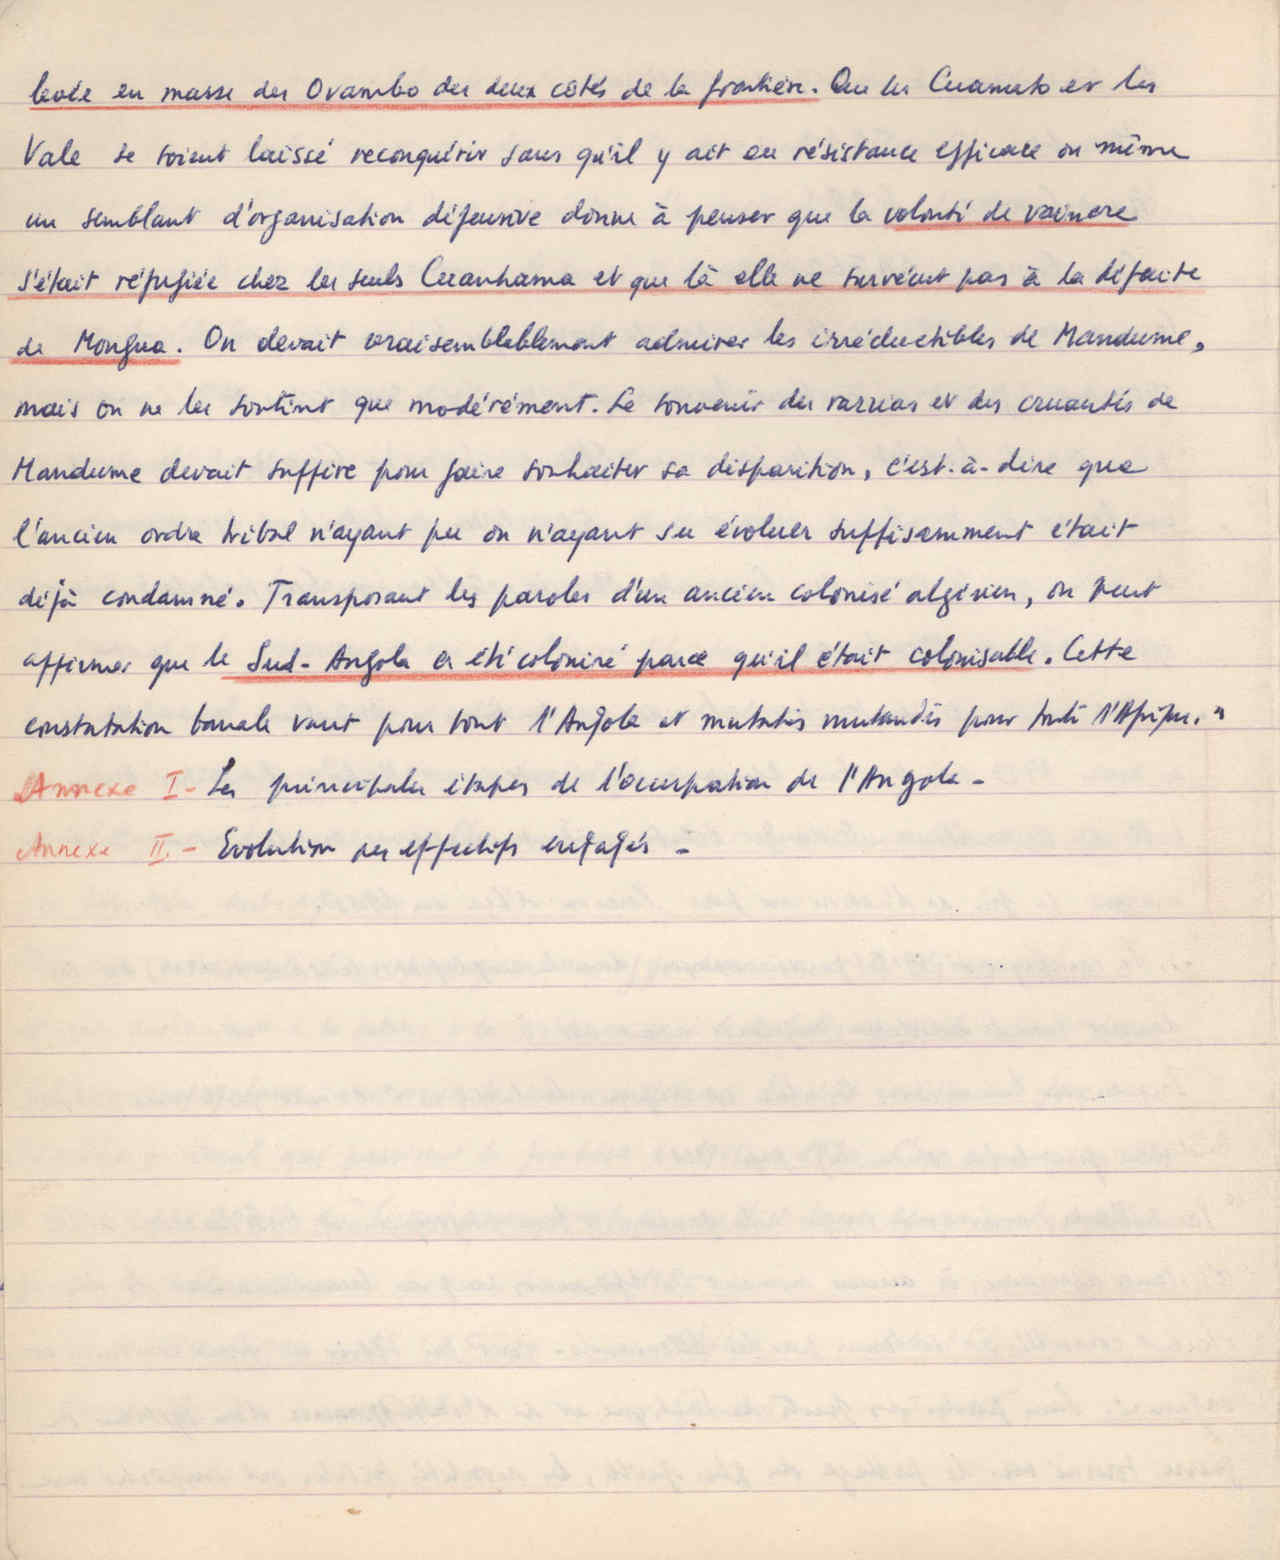 levée en masse des Ovambo des deux côtés de la frontière. Que les Cuamato et les
Vale se soient laissé reconquérir sans qu'il y ait eu résistance efficace ou même
un semblant d'organisation défensive donne à penser que la volonté de vaincre
s'était réfugiée chez les seuls Cuanhama et que là elle ne survécut pas à la défaite
de Mongua. On devait vraisemblablement admirer les irréductibles de Mandume,
mais on ne les soutint que modérément. Le souvenir des razzias et des cruautés de
Mandume devait suffire pour faire souhaiter sa disparition, c'est-à-dire que
l'ancien ordre tribal n'ayant pu ou n'ayant su évoluer suffisamment était
déjà condamné. Transposant les paroles d'un ancien colonisé algérien, on peut
affirmer que le Sud-Angola a été colonisé parce qu'il était colonisable. Cette
constatation banale vaut pour tout l'Angola et mutatis mutandis pour toute l'Afrique."
Annexe I - Les principales étapes de l'occupation de l'Angola -
Annexe II. - Evolution des effectifs engagés -